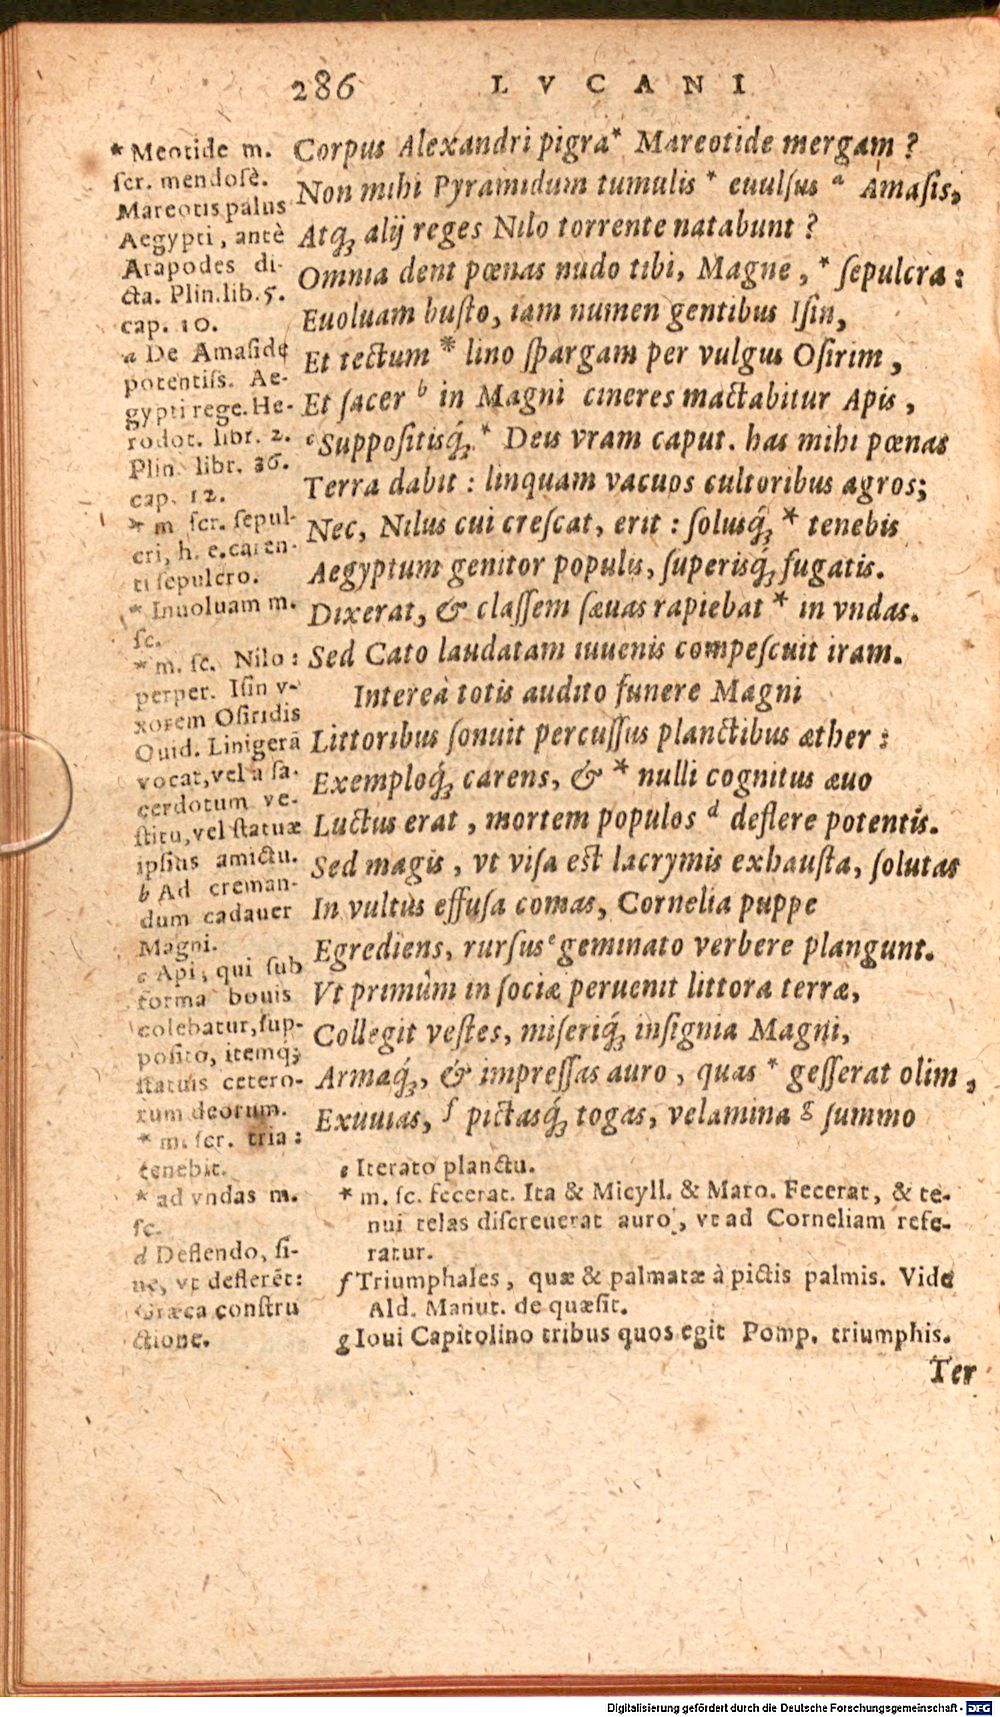 286 LVCANI
Corpus Alexandri pigra* Mareotide mergam ?
Non mihi Pyramidum tumulis * euulsus a Amasis,
Atq́ꝫ alij reges Nilo torrente natabunt ?
Omnia dent pœnas nudo tibi, Magne, * sepulcra :
Euoluam busto, iam numen gentibus Isin,
Et tectum * lino spargam per vulgus Osirim,
Et sacer b in Magni cineres mactabitur Apis,
c Suppositisq́ꝫ * Deis vram caput. has mihi pœnas
Terra dabit : linquam vacuos cultoribus agros;
Nec, Nilus cui crescat, erit : solusq́ꝫ * tenebis
Aegyptum genitor populis, superisq́ꝫ fugatis.
Dixerat, & classem sæuas rapiebat * in vndas.
Sed Cato laudatam iuuenis compescuit iram.
Intereà totis audito funere Magni
Littoribus sonuit percussus planctibus æther :
Exemploq́ꝫ carens, & * nulli cognitus æuo
Luctus erat, mortem populos d deflere potentis.
Sed magis, vt visa est lacrymis exhausta, solutas
In vultus effusa comas, Cornelia puppe
Egrediens, rursus e geminato verbere plangunt.
Vt primùm in sociæ peruenit littora terræ,
Collegit vestes, miseriq́ꝫ insignia Magni,
Armaq́ꝫ, & impressas auro, quas * gesserat olim,
Exuuias, f pictasq́ꝫ togas, velamina g summo
* Meotide m.
scr. mendosè.
Mareotis palus
Aegypti, antè
Arapodes di-
cta. Plin. lib. 5.
cap. 10.
a De Amaside
potentiss. Ae-
gypti rege. He-
rodot. libr. 2.
Plin. libr. 36.
cap. 12.
* m scr. sepul-
cri, h. e. caren-
ti sepulcro.
* Inuoluam m.
sc.
* m. sc. Nilo :
perper. Isin v-
xorem Osiridis
Ouid. Linigerā
vocat, vel à sa-
cerdotum ve-
stitu, vel statuæ
ipsius amictu.
b Ad creman-
dum cadauer
Magni.
c Api, qui sub
forma bouis
colebatur, sup-
posito, itemq́ꝫ
statuis cetero-
rum deorum.
* m. scr. tria :
tenebit.
* ad vndas m.
sc.
d Deflendo, si-
ue, vt deflerēt:
Græca constru
ctione.
e Iterato planctu.
* m. sc. fecerat. Ita & Micyll. & Maro. Fecerat, & te-
nui telas discreuerat auro, vt ad Corneliam refe-
ratur.
f Triumphales, quæ & palmatæ à pictis palmis. Vide
Ald. Manut. de quæsit.
g Ioui Capitolino tribus quos egit Pomp. triumphis.
Ter
Digitalisierung gefördert durch die Deutsche Forschungsgemeinschaft - DFG